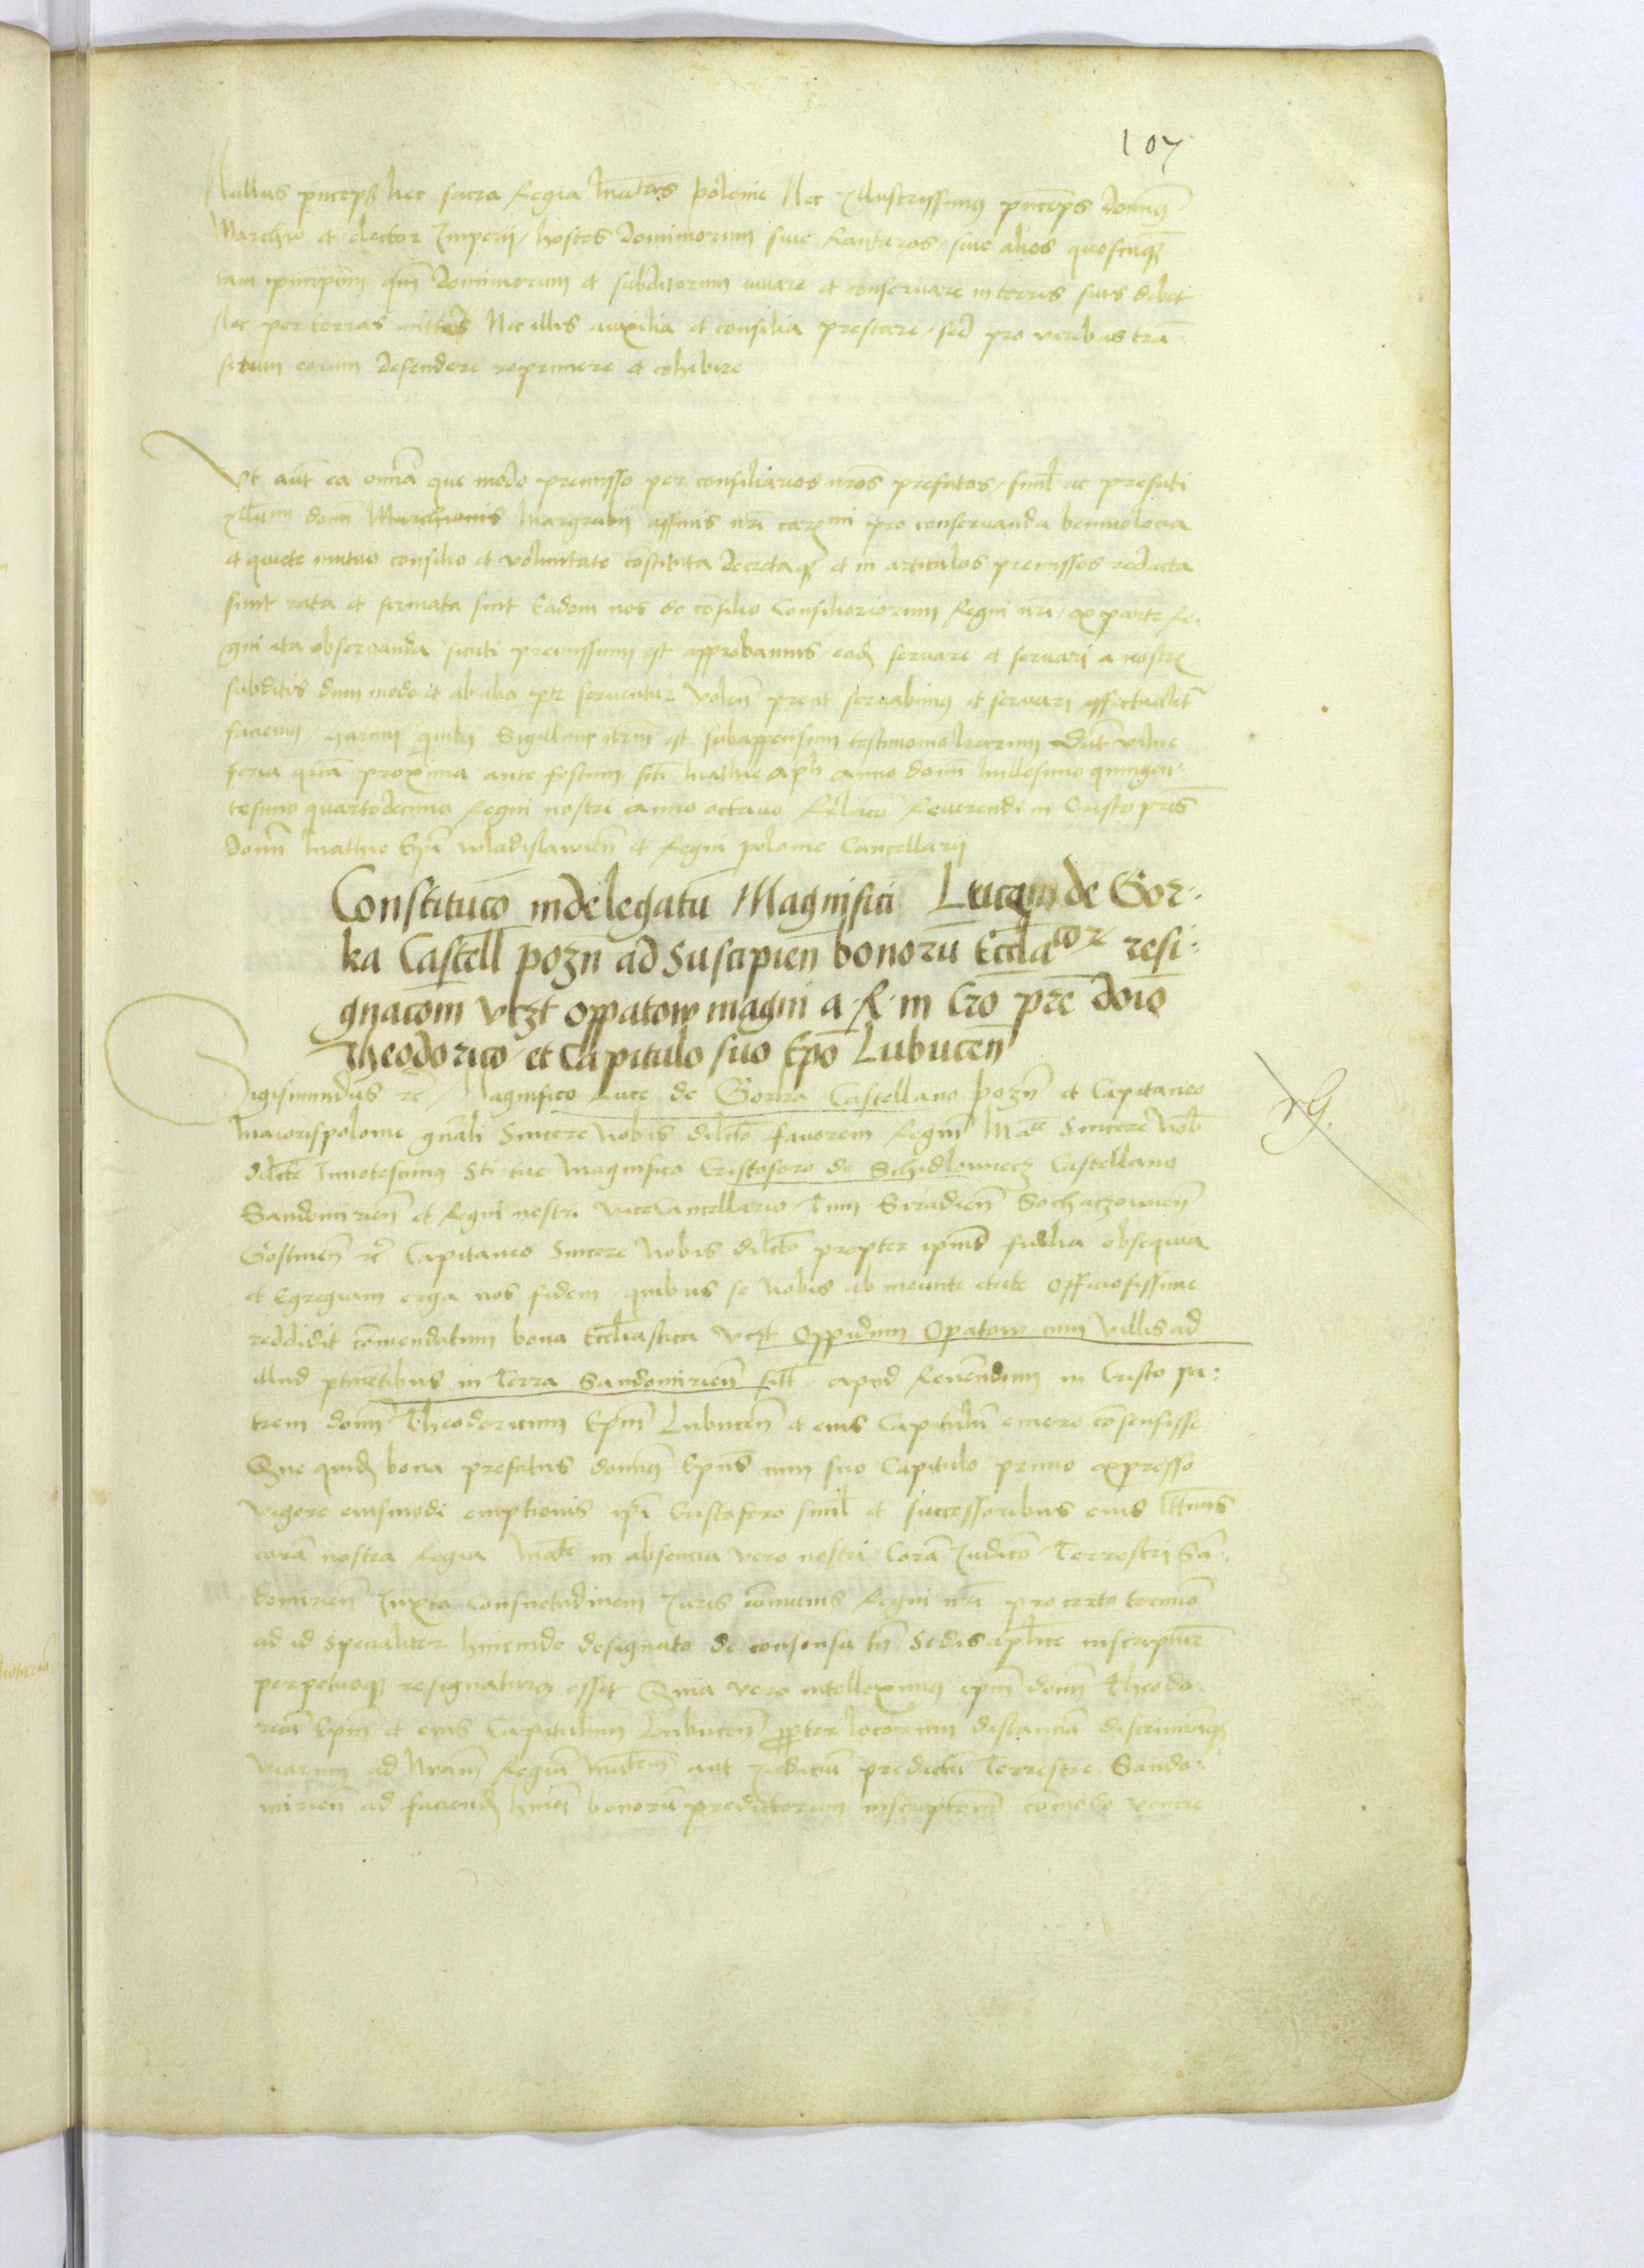 107
Nullus princeps hec sacra Regia Mtas Polonie Nec Illustrissimus princeps dominus
Marchio et elector Imperii, hostes dominorum sive Raptores, sive alios quoscunque
tam principum quam dominorum et subditorum iuvare et conservare in terris suis debet
Nec per terras mittere Nec illis auxilia et consilia prestare, sed pro viribus tran
situm eorum defendere reprimere et cohibere
Ut aut ea omnia que modo premisso per consiliarios nros prefatos, simul ac prefati
Illmi domi Marchionis Margravii affinis nri carmi pro conservanda benivolencia
et quiete mutuo consilio et voluntate constituta decretaque et in articulos premissos redacta
sunt rata et firmata sint Eadem nos de consilio Consiliariorum Regni nri, ex parte Re
gni ita observanda sicuti premissum est approbamus, eadem servare et servari a nostris
subditis dummodo et ab alia parte serventur volen prout servabimus et servari effectualiter
faciemus, harum quibus Sigillum nrm est subappensum testimonio literarum Datum Vilne
feria quinta proxima ante festum sti Mathie Apli anno domi Millesimo quingen
tesimo quartodecimo Regni nostri anno octavo Relatio Reverendi in Cristo pris
domi Mathie Epi Wladislavien et Regni Polonie Cancellarii
Constitucio in delegatum Magnifici Lucam de Gor
ka Castell pozn ad suscipien bonorum Eccliacor resi
gnacom vczt oppatow magni a R in Cro pre doio
Theodorico et Capitulo suo Epo Lubucen
Sigismundus rc Magnifico Luce de Gorka Castellano pozn et Capitaneo
Maiorispolonie gnali Sincere Nobis dilcto favorem Regium Mce Sincere Nob
dilcte Innotescimus Sti tue Magnifico Cristofero de Schidlowiecz Castellano
Sandomirien et Regni nostri vicecancellario, Tum Siradien Sochaczowien
Gostinen rc Capitaneo Sincere Nobis dilcto propter ipius fidelia obsequia
et Egregiam erga nos fidem, quibus se Nobis ab ineunte etate officiosissime
reddidit comendatum bona Eccliastica vczt Oppidum Opatow cum villis ad
illud ptinentibus in Terra Sandomirien sitt, apud Reverendum in Cristo pa
trem domi Theodoricum Epum Lubucen et eius Capitulum emere consensisse
Que quidem bona prefatus dominus Epus cum suo Capitulo primo expresso
vigore eiusmodi emptionis ipi Cristofero simul et successoribus eius lttimis
coram nostra Regia Mate in absencia vero nostri Coram Iudicio Terrestri San
domirien Iuxta consuetudinem Iuris comunis Regni nri pro certo termino
ad id specialiter hincinde designato de consensu tn Sedis aplice inscriptur
perpetuoque resignaturus esset Quia vero intelleximus ipm domi Theodo
ricum Epum et eius Capitulum Lubucen propter locorum distanciam discriminaque
viarum ad Nram Regiam Matem aut Iudicium predictum Terrestre Sando
mirien ad faciend hmoi bonorum predictorum inscriptionem comode venire